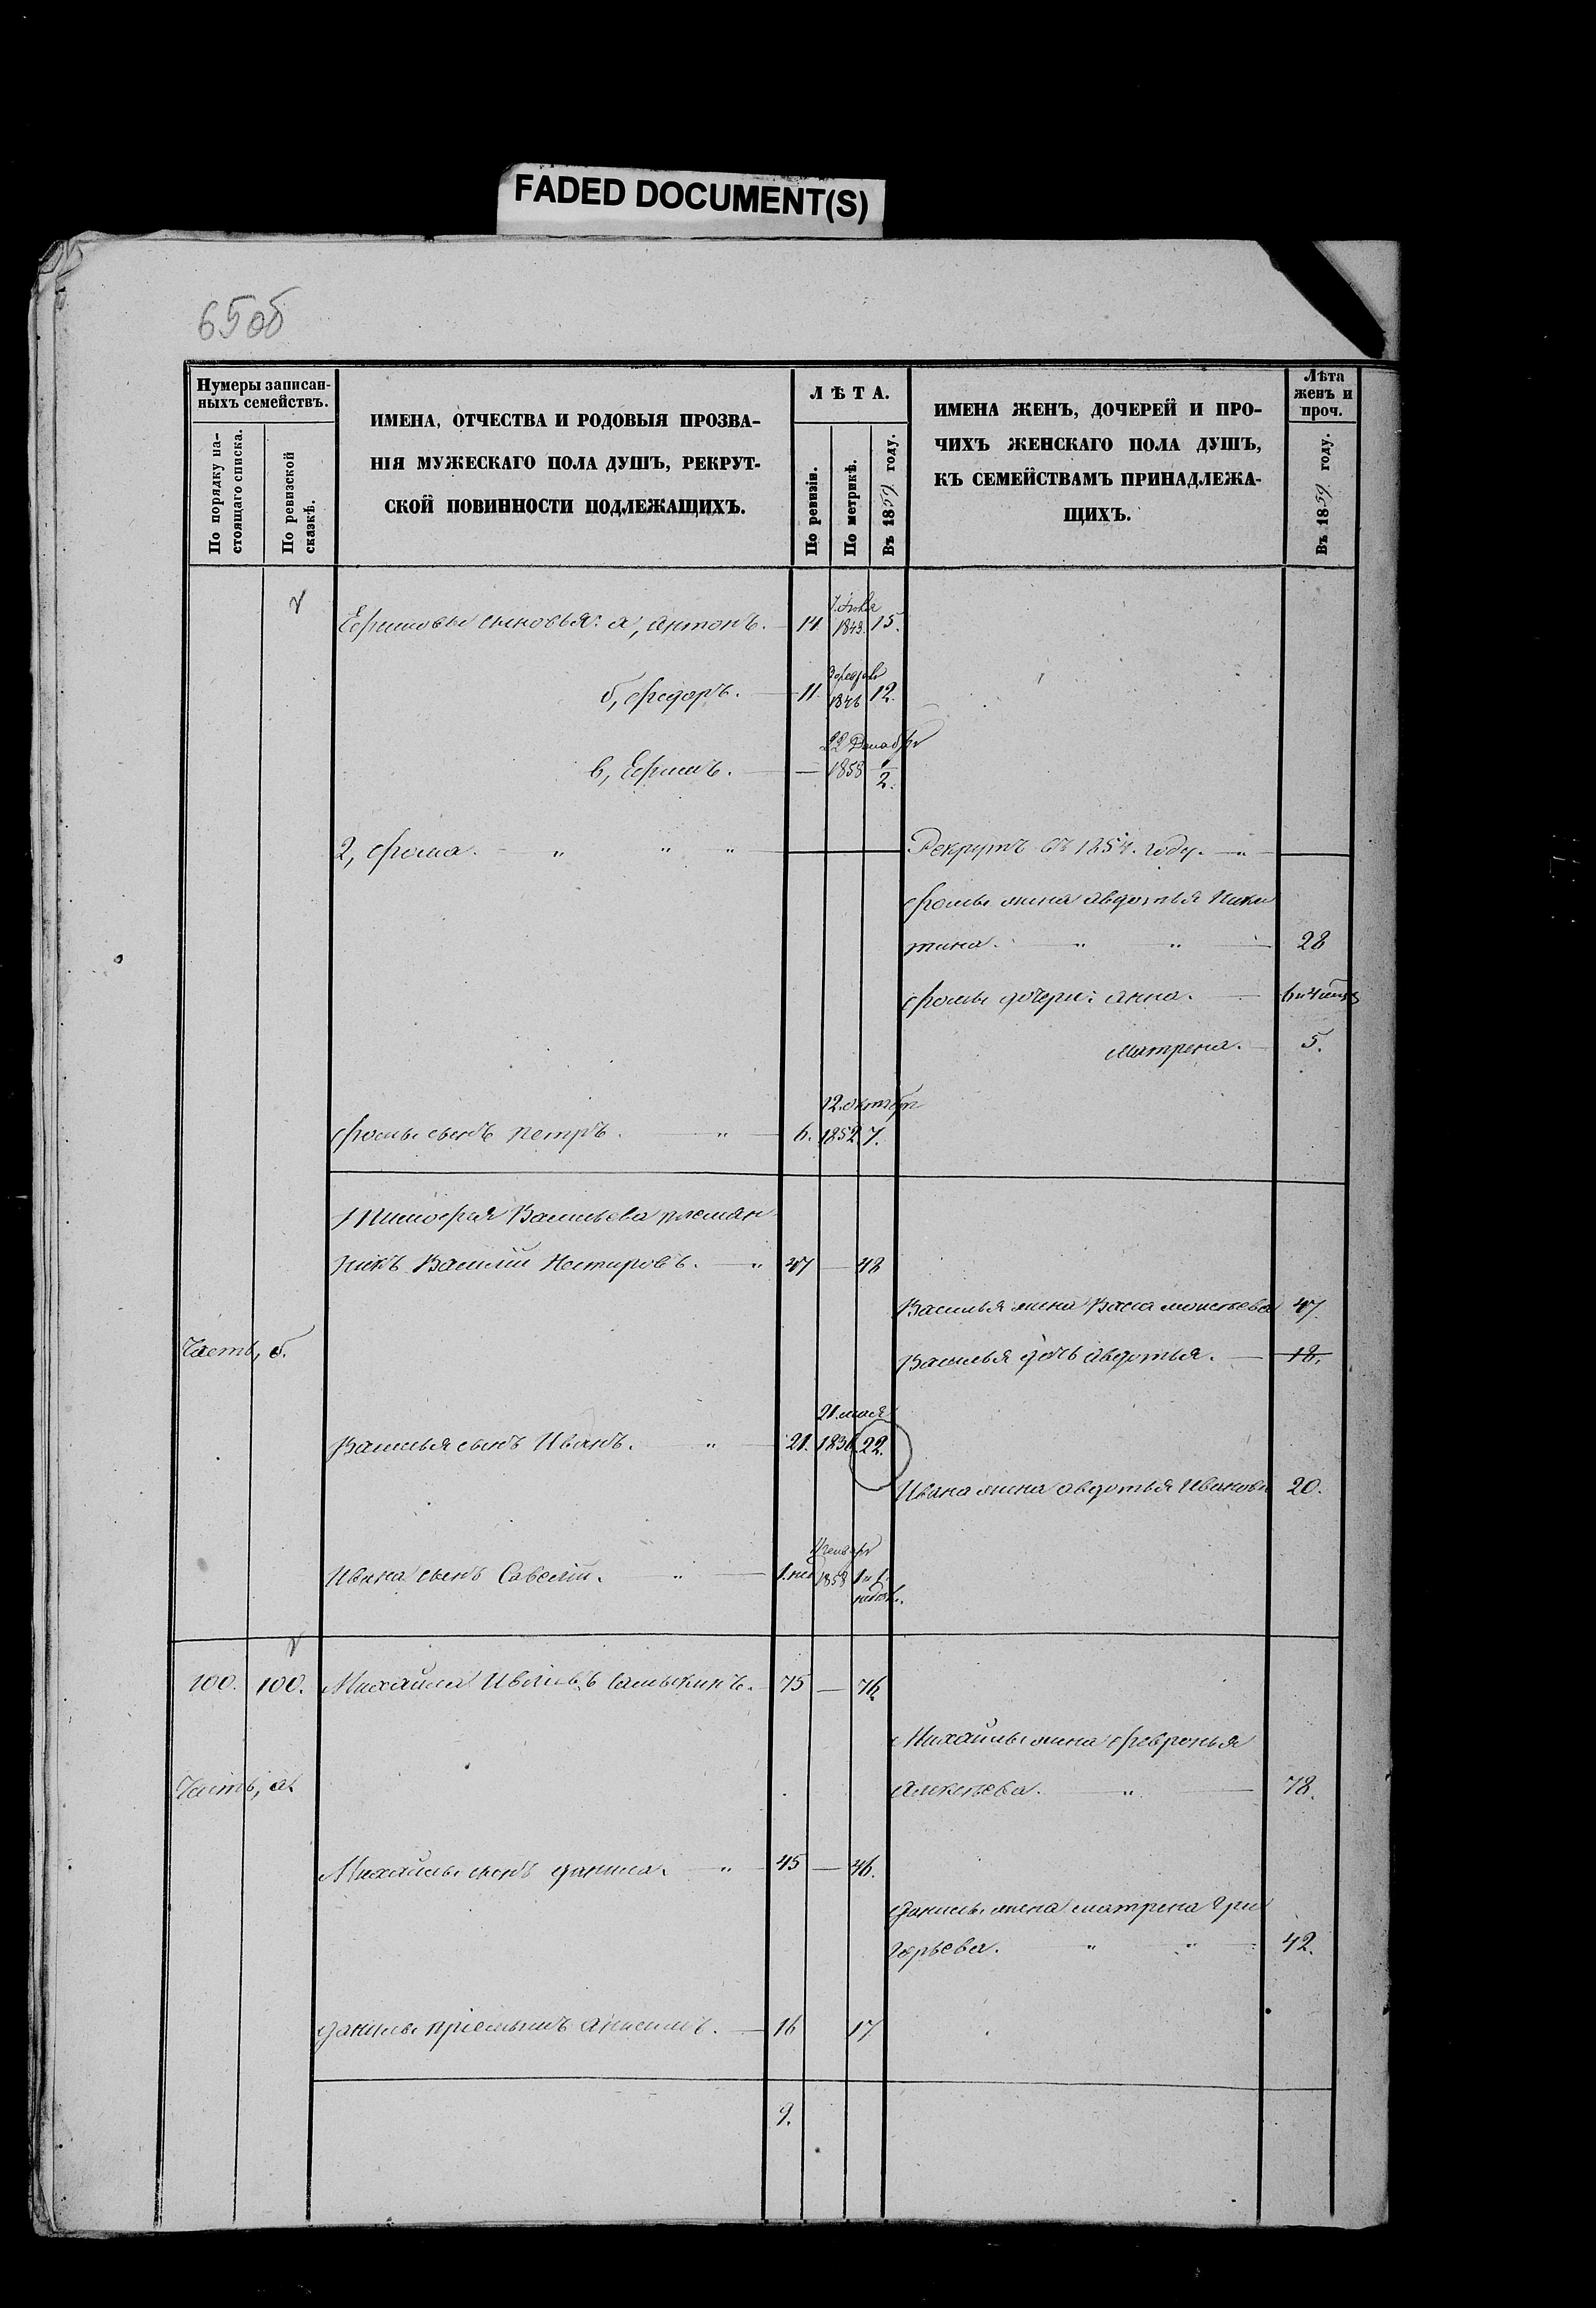 FADED DOCUMENT(S)
65об
Нумеры записан-
ныхъ семействъ.
По порядку на-
стоящаго списка.
По ревизской
сказкѣ.
ИМЕНА, ОТЧЕСТВА И РОДОВЫЯ ПРОЗВА-
НІЯ МУЖЕСКАГО ПОЛА ДУШЪ, РЕКРУТ-
СКОЙ ПОВИННОСТИ ПОДЛЕЖАЩИХЪ.
ЛѢТА.
По ревизіи.
По метрикѣ.
Въ 1859 году.
ИМЕНА ЖЕНЪ, ДОЧЕРЕЙ И ПРО-
ЧИХЪ ЖЕНСКАГО ПОЛА ДУШЪ,
КЪ СЕМЕЙСТВАМЪ ПРИНАДЛЕЖА-
ЩИХЪ.
Лѣта
женъ и
проч.
Въ 1859 году.
Ефимовы сыновья: а, антонъ. 14 1843. 15.
б, Федоръ. 11. 1846 12.
22 Декабря
в, Ефимъ. — 1858 1/2.
2, Фома. Рекрутъ въ 1854. году.
Фомы жена авдотья Ники
тина. 28
Фомы дочери: анна.
Матрена. 5.
12. октября
Фомы сынъ петръ. 6. 1852 7.
Тимофея Васильева племян
никъ Василій Нестировъ. 47 — 48
Василья жена Васса моисеева 47.
Часть, б.
Василья дочь авдотья. 18.
21. мая
Василья сынъ Иванъ. 21. 1836 22.
Ивана жена авдотья Иванова 20.
Январ
Ивана сынъ Савелій. 1. нед 1858 1 и 1.
недел.
100. 100. Михайла Ивановъ 75 — 76
Михайлы жена Февронья
78.
Часть, а.
Михайлы сынъ данила. 45 — 46.
данилы жена матрена Гри
горьева. 42.
данилы пріемышъ анисимъ. 16 17
9.